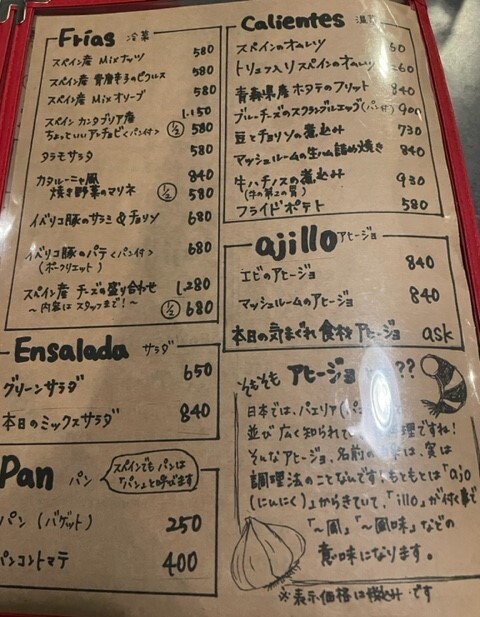 Frías 冷菜
スペイン産 Mixナッツ 580
スペイン産 青唐辛子のピクルス 580
スペイン産 Mixオリーブ 580
スペイン カンタブリア産 1.150
ちょっといいアンチョビ<パン付> 1/2 580
タラモサラダ 580
カタルーニャ風 840
焼き野菜のマリネ 1/2 580
イベリコ豚のサラミ & チョリソ 680
イベリコ豚のパテ<パン付> 680
(ポークリエット)
スペイン産 チーズの盛り合わせ 1.280
~内容はスタッフまで!~ 1/2 680
Ensalada サラダ
グリーンサラダ 650
本日のミックスサラダ 840
Pan パン
スペインでもパンは
「パン」と呼びます
パン (バゲット) 250
パンコントマテ 400
Calientes 温
スペインのオムレツ
トリュフ入りスペインのオムレツ
青森県産 ホタテのフリット 840
ブルーチーズのスクランブルエッグ(パン付) 900
豆とチョリソの煮込み 730
マッシュルームの生ハム詰め焼き 840
牛ハチノスの煮込み 930
(牛の第2の胃)
フライドポテト 580
ajillo アヒージョ
エビのアヒージョ 840
マッシュルームのアヒージョ 840
本日の気まぐれ食材アヒージョ ask
そもそも アヒージョ ??
日本では、パエリア
並び広く知られて 理ですね!
そんなアヒージョ、名前の は、実は
調理法のことなんです!もともとは「ajo
(にんにく)」からきていて、「illo」が付く事で
「~風」「~風味」などの
意味になります。
※表示価格は税込みです